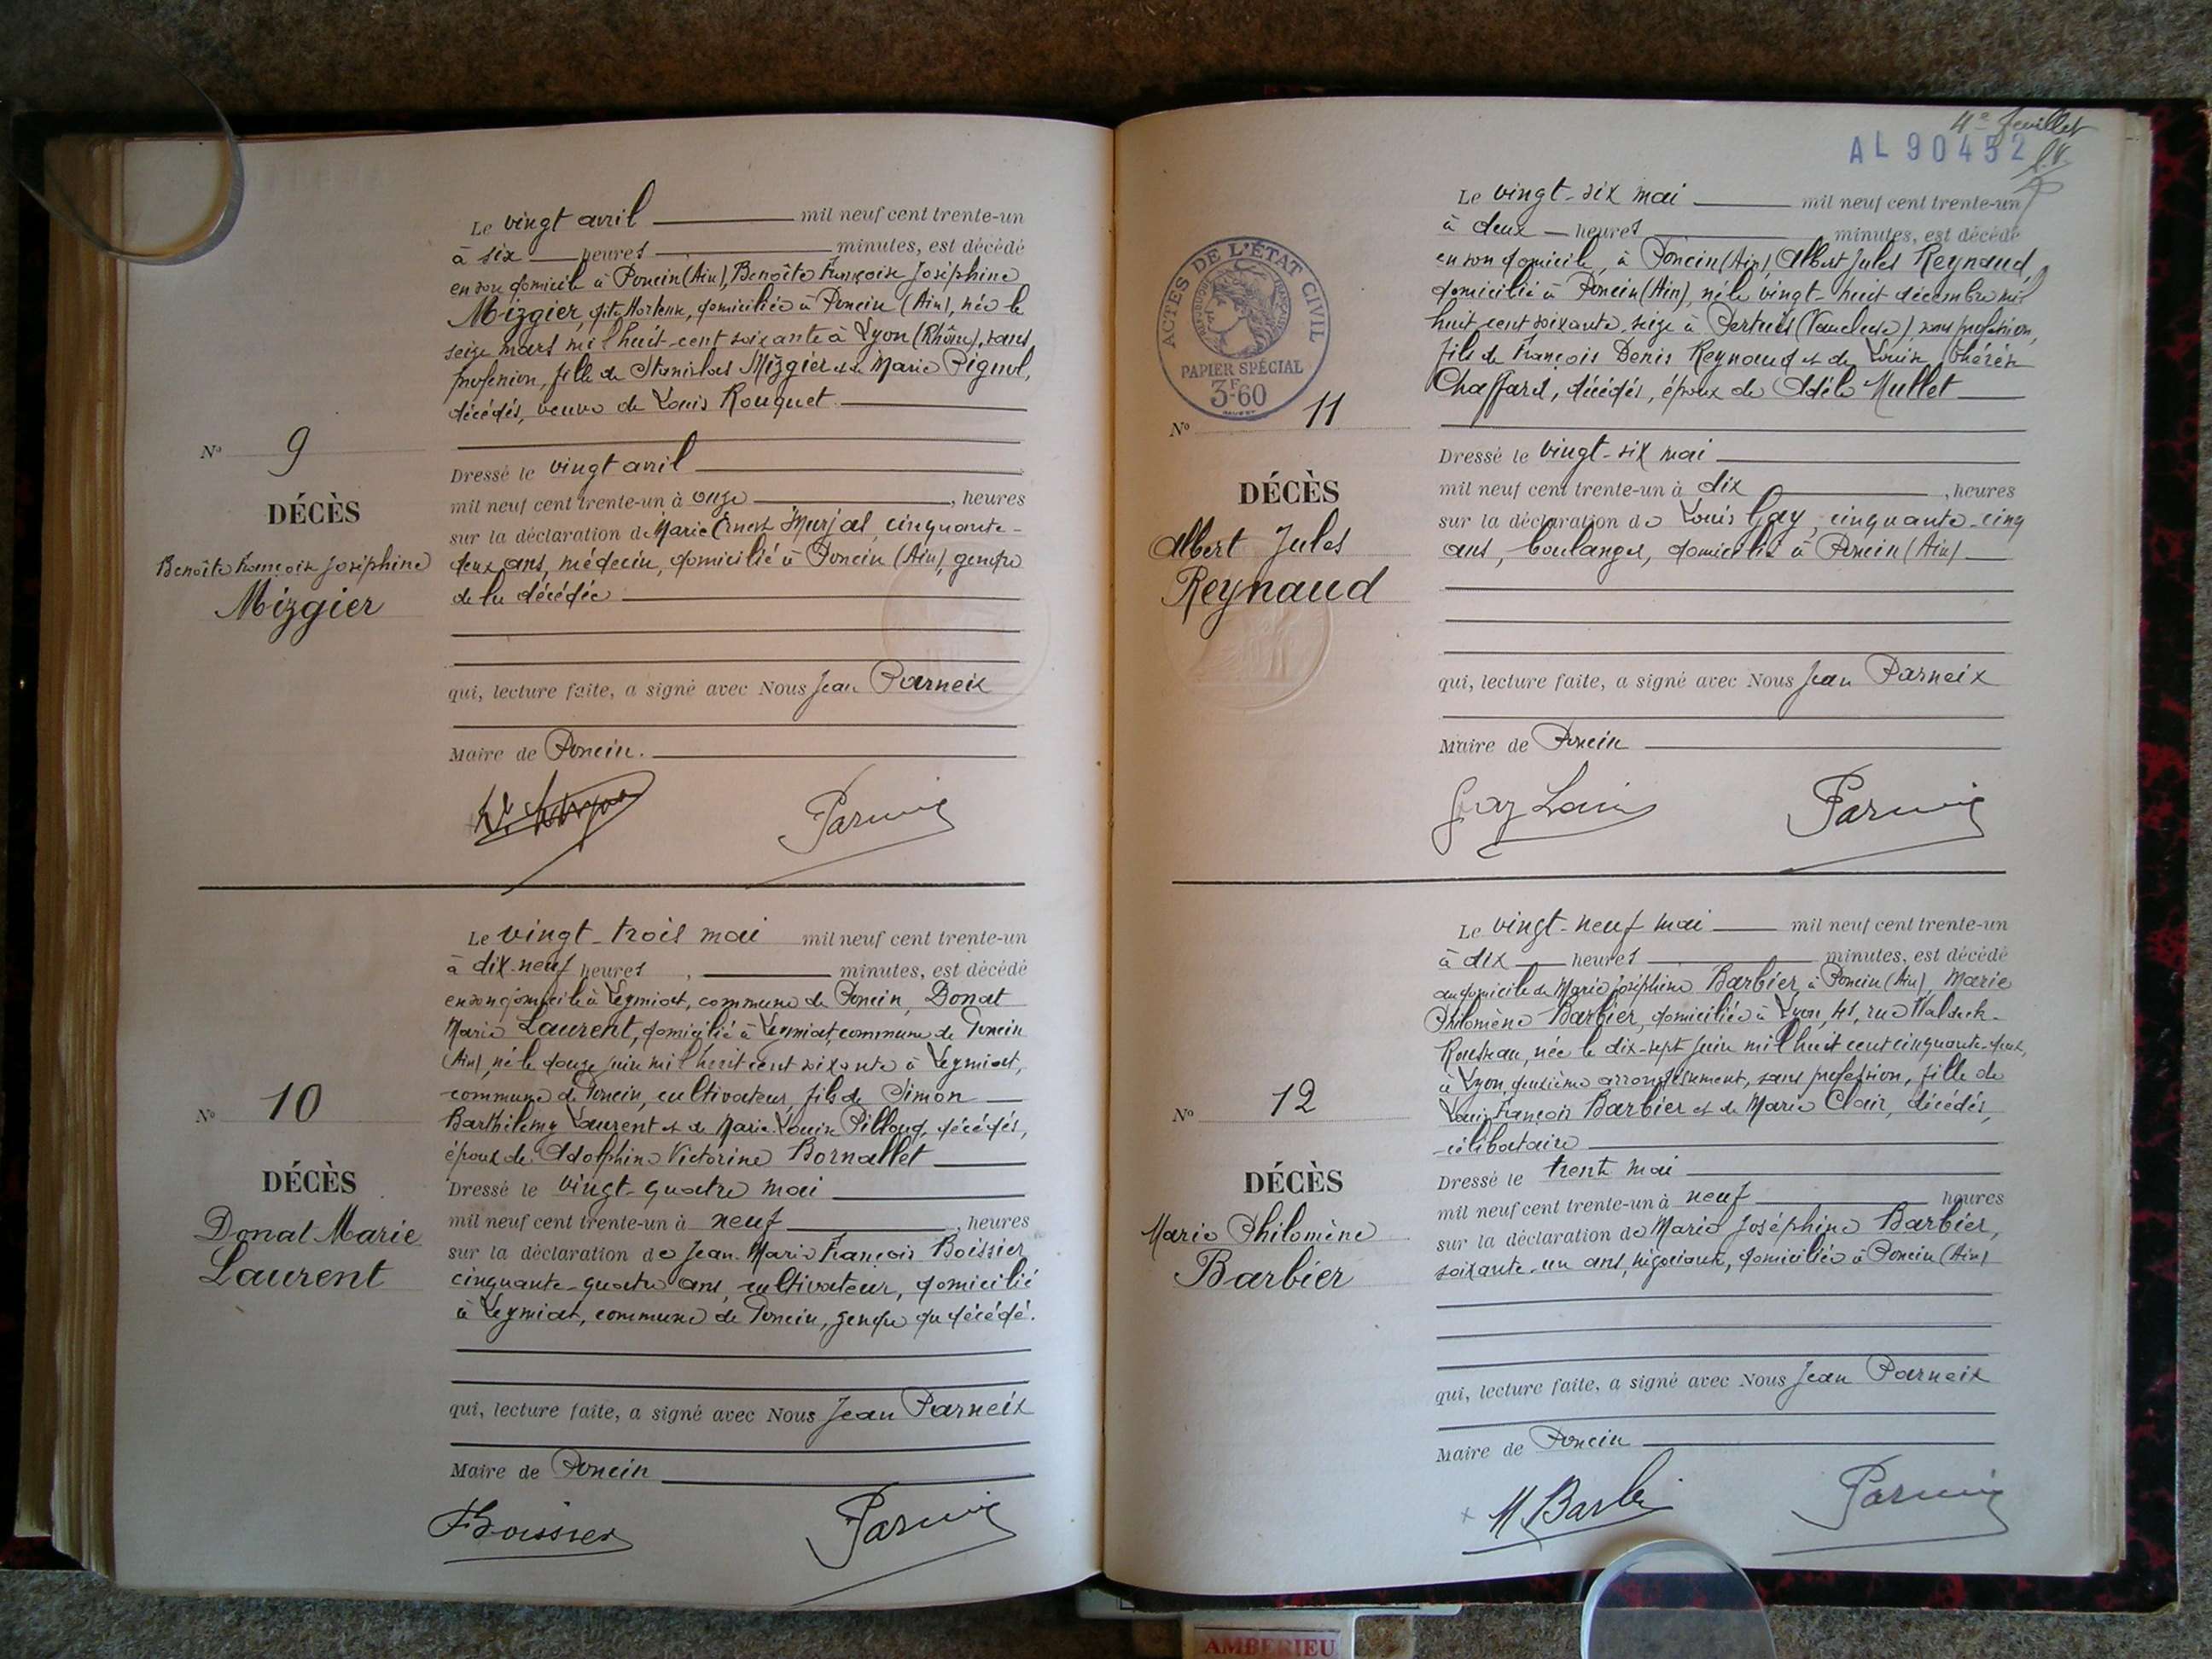 Le vingt avril mil neuf cent trente-un
à six heures minutes, est décédé
en son domicile à Poncin (Ain), Benoîte Françoise Joséphine
Mizgier, dite Hortense, domiciliée à Poncin (Ain), née le
seize mars mil huit cent soixante à Lyon (Rhône), sans
profession, fille de Stanislas Mizgier et de Marie Pignol,
décédés, veuve de Louis Rouquet.
N° 9
DÉCÈS
Benoîte Françoise Joséphine
Mizgier
Dressé le vingt avril
mil neuf cent trente-un à onze , heures
sur la déclaration de Marie Ernest cinquante-
deux ans, médecin, domicilié à Poncin (Ain), gendre
de la décédée
qui, lecture faite, a signé avec Nous Jean Parneix
Maire de Poncin.
Parneix
Le vingt-trois mai mil neuf cent trente-un
à dix-neuf heures , minutes, est décédé
en son domicile à Leymiat, commune de Poncin, Donat
Marie Laurent, domicilié à Leymiat, commune de Poncin
(Ain), né le douze juin mil huit cent soixante à Leymiat,
commune de Poncin, cultivateur, fils de Simon
Barthélemy Laurent et de Marie Louise Pilloud, décédés,
époux de Adolphine Victorine Bornallet
N° 10
DÉCÈS
Donat Marie
Laurent
Dressé le vingt-quatre mai
mil neuf cent trente-un à neuf , heures
sur la déclaration de Jean-Marie François Boissier
cinquante-quatre ans, cultivateur, domicilié
à Leymiat, commune de Poncin, gendre du décédé.
qui, lecture faite, a signé avec Nous Jean Parneix
Maire de Poncin
Boissier
Parneix
4e feuillet
AL 90452
Le vingt-six mai mil neuf cent trente-un
à deux heures minutes, est décédé
en son domicile, à Poncin (Ain), Albert Jules Reynaud,
domicilié à Poncin (Ain), né le vingt-huit décembre mil
huit cent soixante-seize à Pertuis (Vaucluse), sans profession,
fils de François Denis Reynaud et de Louise Thérèse
Chaffard, décédés, époux de Adèle Mullet
ACTES DE L'ÉTAT CIVIL
RÉPUBLIQUE FRANÇAISE
PAPIER SPÉCIAL
3F60
N° 11
DÉCÈS
Albert Jules
Reynaud
Dressé le vingt-six mai
mil neuf cent trente-un à dix , heures
sur la déclaration de Louis Gay, cinquante-cinq
ans, boulanger, domicilié à Poncin (Ain)
qui, lecture faite, a signé avec Nous Jean Parneix
Maire de Poncin
Gay Louis
Parneix
Le vingt-neuf mai mil neuf cent trente-un
à dix heures minutes, est décédé
au domicile de Marie Joséphine Barbier, à Poncin (Ain), Marie
Philomène Barbier, domiciliée à Lyon, 41, rue Waldeck-
Rousseau, née le dix-sept juin mil huit cent cinquante-deux,
à Lyon deuxième arrondissement, sans profession, fille de
Louis François Barbier et de Marie Clair, décédés,
célibataire
N° 12
DÉCÈS
Marie Philomène
Barbier
Dressé le trente mai
mil neuf cent trente-un à neuf heures
sur la déclaration de Marie Joséphine Barbier,
soixante-un ans, négociante, domiciliée à Poncin (Ain)
qui, lecture faite, a signé avec Nous Jean Parneix
Maire de Poncin
M Barbi
Parneix
AMBERIEU